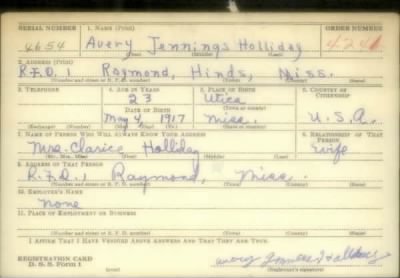 SERIAL NUMBER 1. NAME (Print) ORDER NUMBER
4654 Avery Jennings Holliday 424
2. ADDRESS (Print)
R.F.D. 1 Raymond, Hinds, Miss.
(Number and street or R. F. D. number) (Town) (County) (State)
3. TELEPHONE 4. AGE IN YEARS 5. PLACE OF BIRTH 6. COUNTRY OF CITIZENSHIP
23 Utica
DATE OF BIRTH (Town or county)
May 4, 1917 Miss. U.S.A.
(Exchange) (Number) (Mo.) (Day) (Yr.) (State or country)
7. NAME OF PERSON WHO WILL ALWAYS KNOW YOUR ADDRESS 8. RELATIONSHIP OF THAT PERSON
Mrs. Clarice Holliday wife
(Mr., Mrs., Miss) (First) (Middle) (Last)
9. ADDRESS OF THAT PERSON
R.F.D. 1 Raymond, Miss.
(Number and street or R. F. D. number) (Town) (County) (State)
10. EMPLOYER'S NAME
None
11. PLACE OF EMPLOYMENT OR BUSINESS
(Number and street or R. F. D. number) (Town) (County) (State)
I AFFIRM THAT I HAVE VERIFIED ABOVE ANSWERS AND THAT THEY ARE TRUE.
REGISTRATION CARD
D. S. S. Form 1 (over) (Registrant's signature)
Avery Jennings Holliday